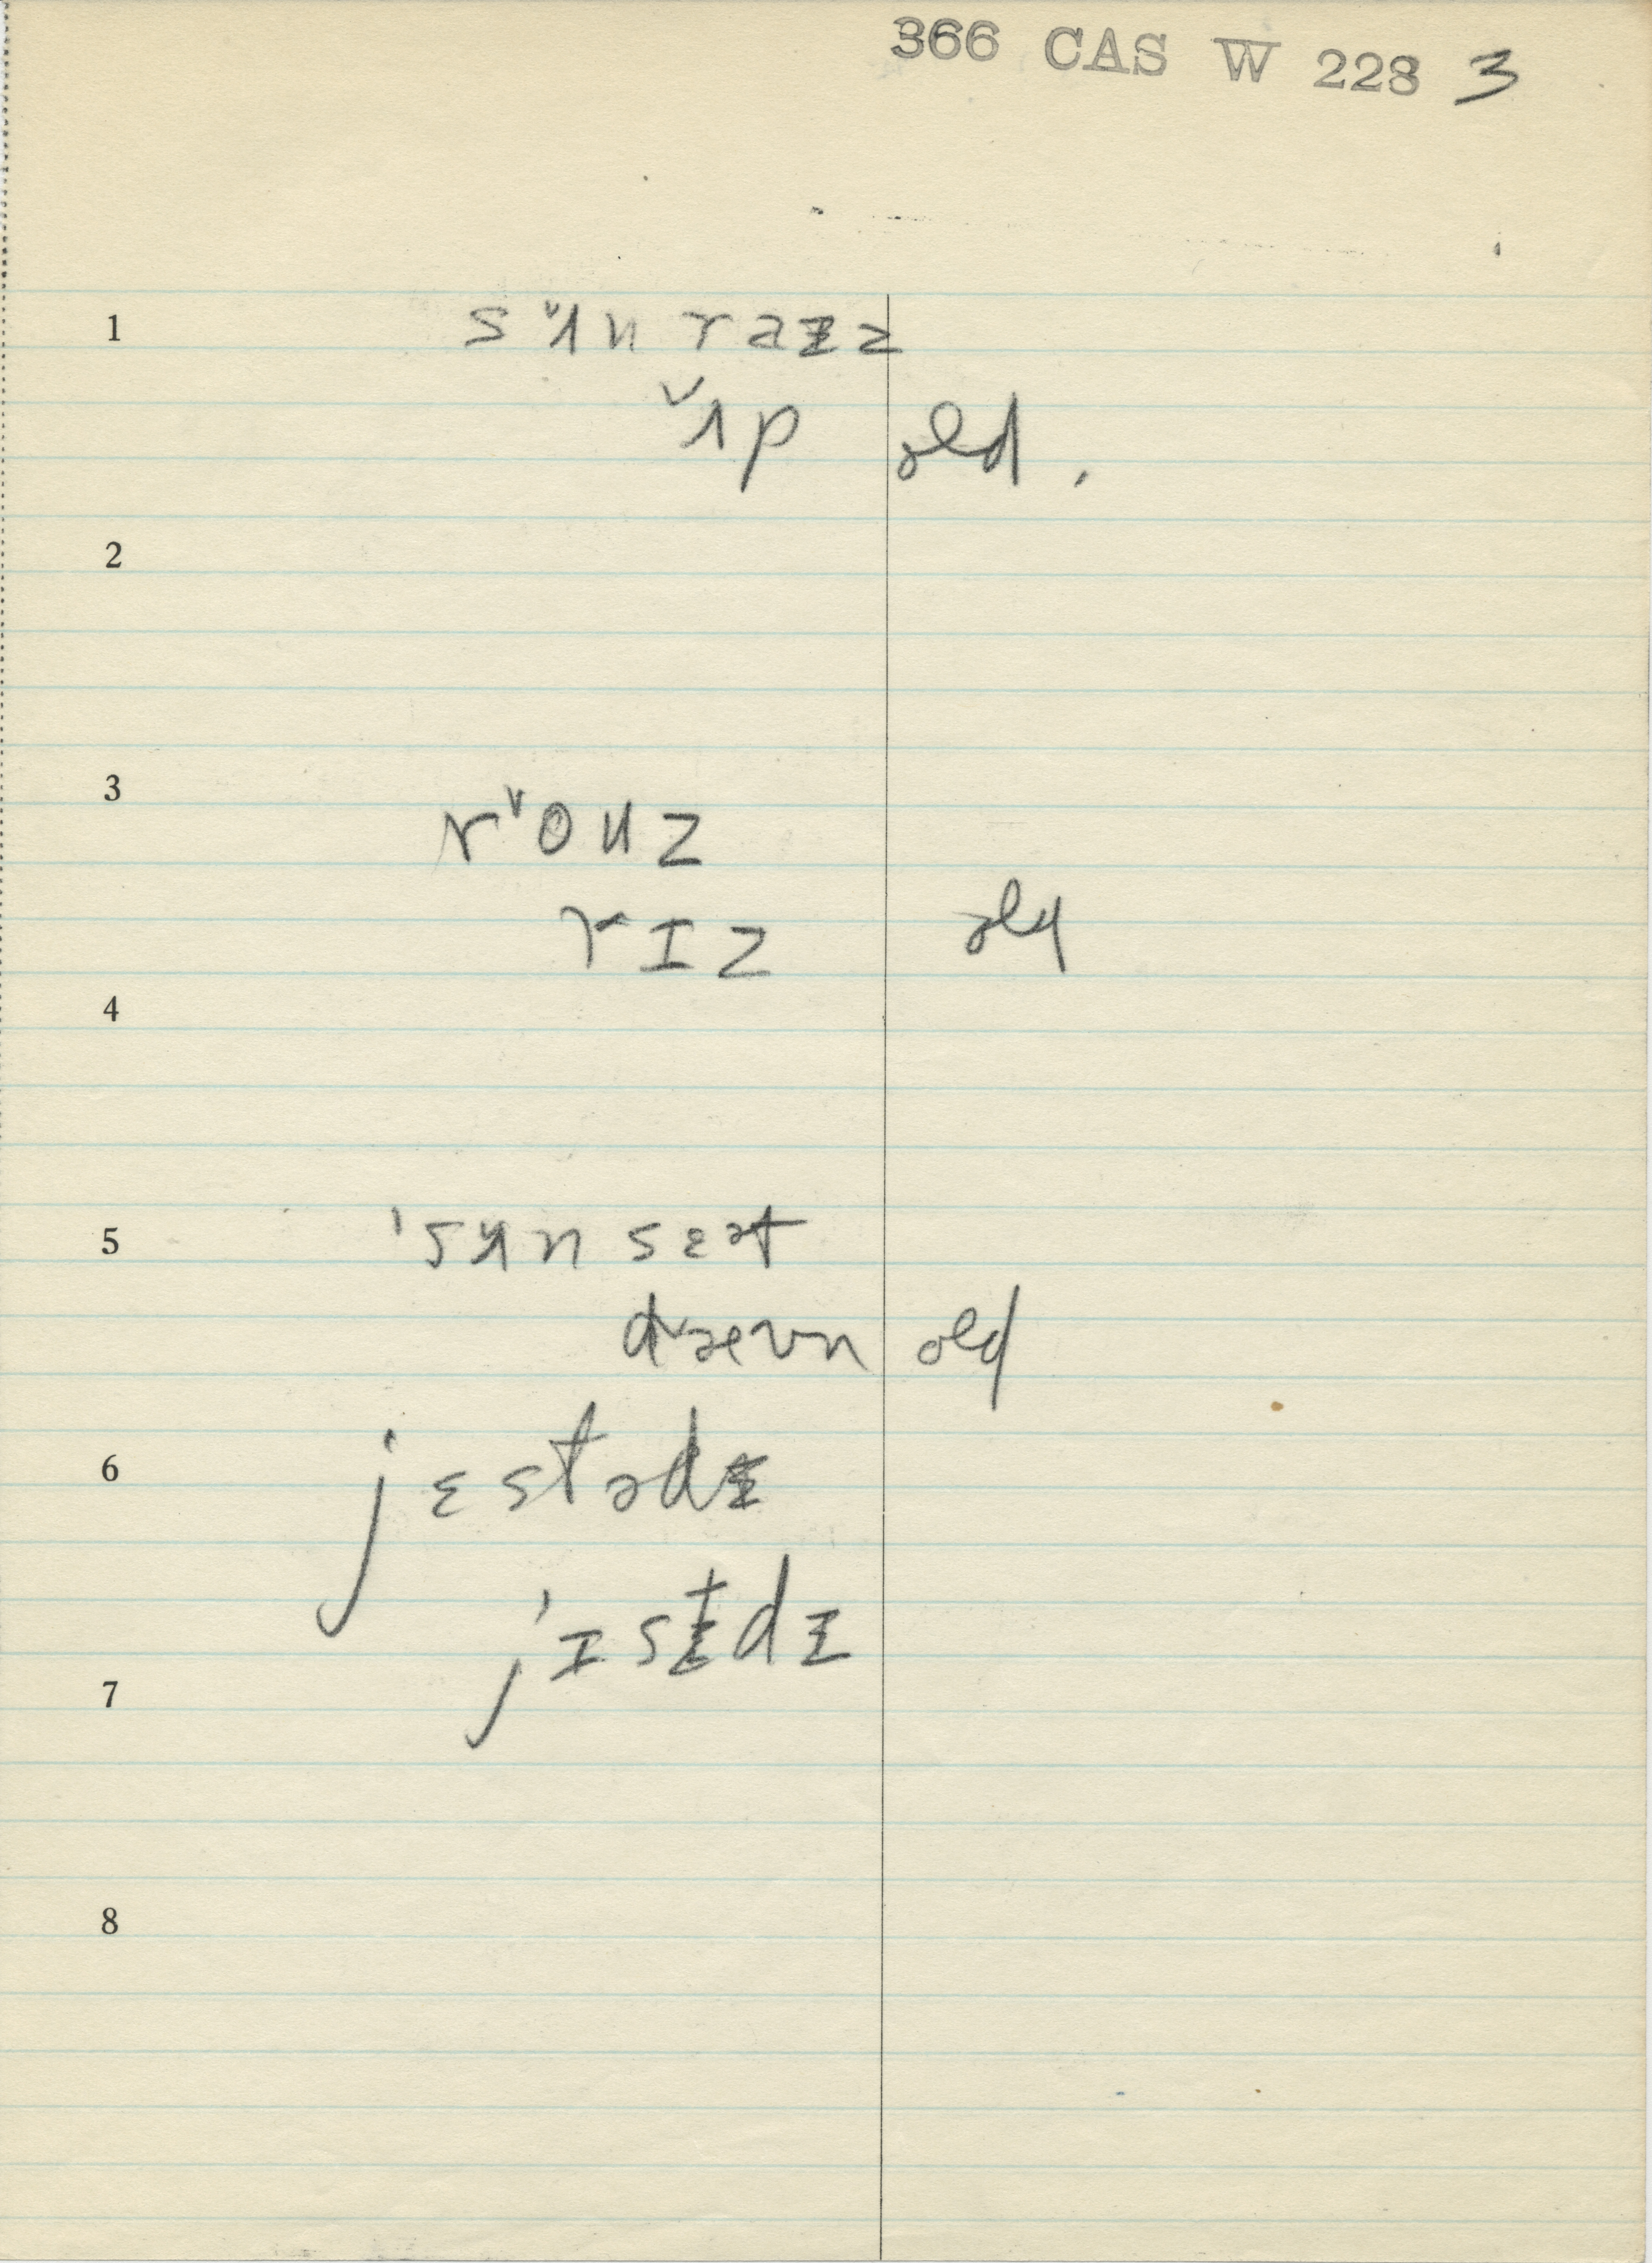 366 CAS W 228 3
1 sᵛʌn raɪz
ᵛʌp old.
2
3 rᵛouz
rɪz old
4
5 'sʌn sɛət
dᵛæʊn old
6 jɛstədɪ
j'ɪstɪdɪ
7
8